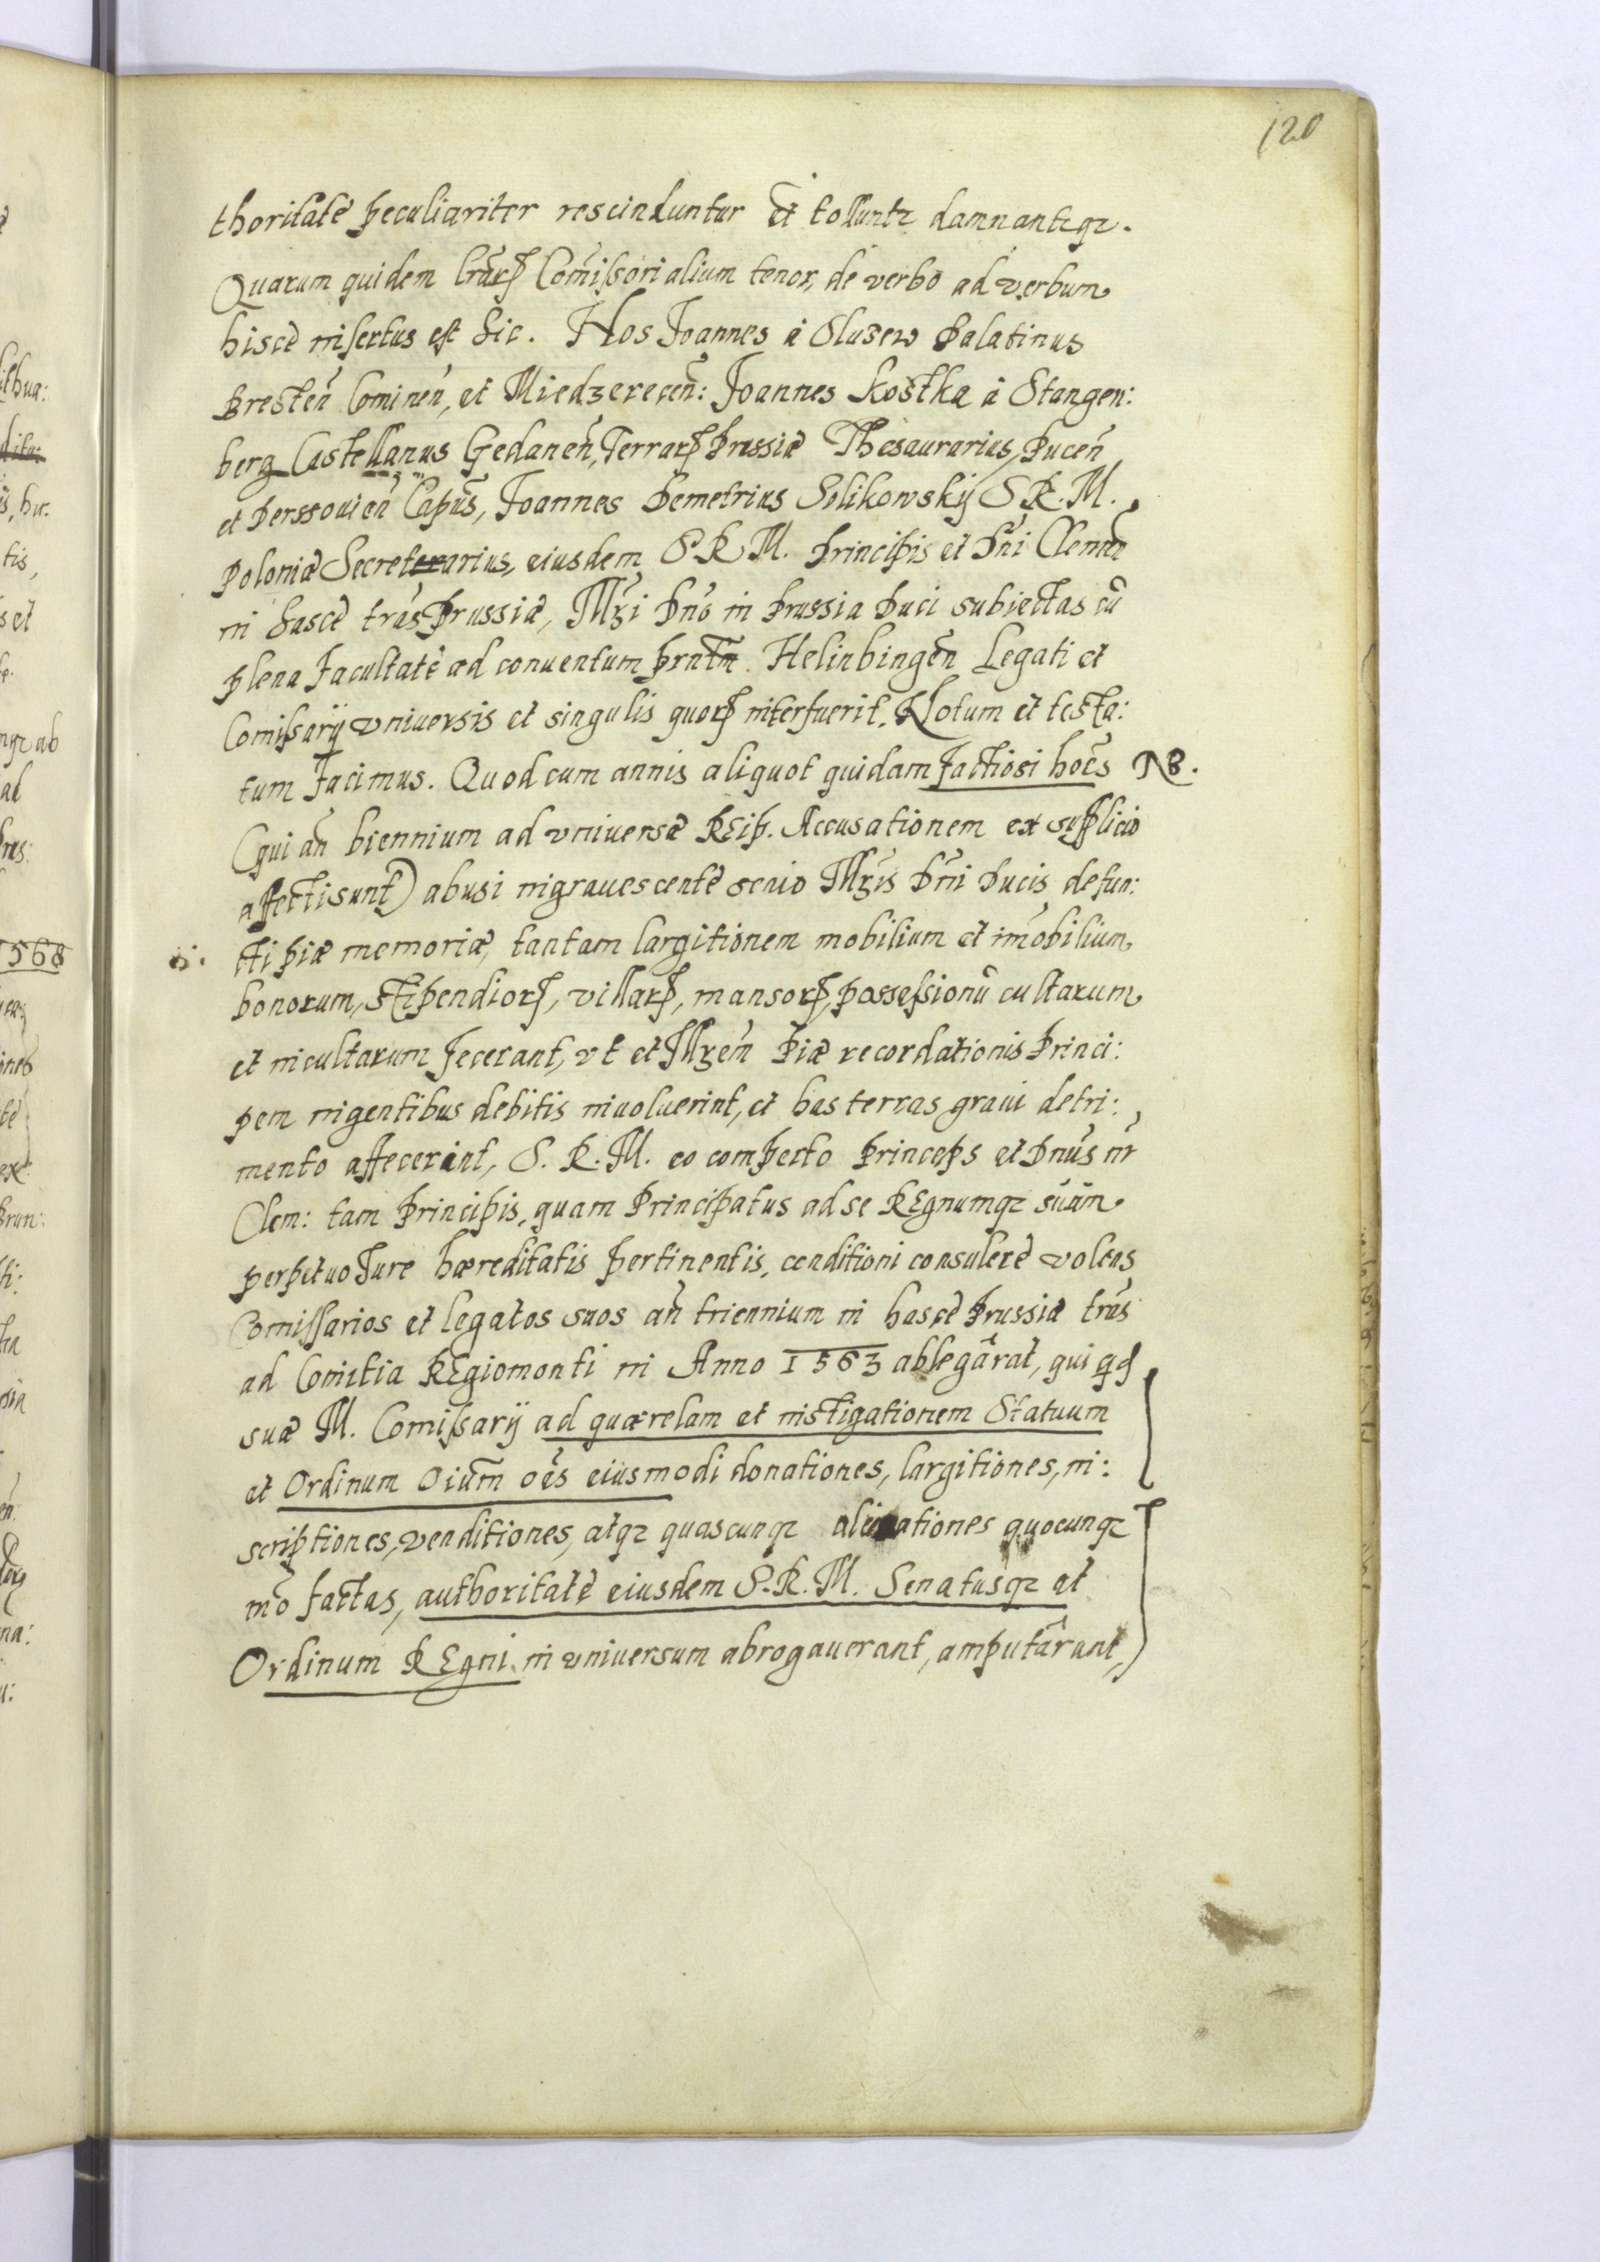 120
thoritate peculiariter rescinduntur et tolluntr damnantrqz.
Quarum quidem lrarꝝ Comissorialium tenor, de verbo ad verbum
hisce insertus est sic. Nos Joannes à Sluzew Palatinus
Bresten̄ Comineñ, et Miedzereceñ: Joannes Kostka à Stangen:
berg Castellanus Gedaneñ, Terrarꝝ Prussiæ Thesaurarius, Puceñ
et Derssouieñ Capn̄s, Joannes Demetrius Solikowskij S R. M.
Poloniæ Secretarius, eiusdem S R M. Principis et Dn̄i Clemn̄
in hasce trās Prussiæ, Illr̄i Dn̄o in Prussia Duci subiectas cū
plena facultate ad conuentum prn̄tm Helinbingeñ Legati et
Comissarij vniuersis et singulis quorꝝ interfuerit, Notum et testa:
tum facimus. Quod cum annis aliquot quidam factiosi hoēs NB.
(qui añ biennium ad vniuersæ REip. Accusationem ex supplicio
affecti sunt) abusi ingrauescente senio Illr̄is Dn̄i Ducis defun:
cti piæ memoriæ, tantam largitionem mobilium et im̄obilium
bonorum, stipendiorꝝ, villarꝝ, mansorꝝ, possessionū cultarum
et incultarum fecerant, vt et Illr̄em piæ recordationis Princi:
pem ingentibus debitis inuoluerint, et has terras graui detri:
mento affecerint, S. R. M. eo comperto Princeps et Dn̄us nr̄
Clem: tam Principis, quam Principatus ad se REgnumqz suūm
perpetuo Jure hæreditatis pertinentis, conditioni consulere volens
Comissarios et legatos suos añ triennium in hasce Prussiæ trās
ad Comitia REgiomonti in Anno 1563 ablegârat, qui qd
suæ M. Comissarij ad quærelam et instigationem Statuum
et Ordinum Oiūm oēs eiusmodi donationes, largitiones, in:
scriptiones, venditiones, atqz quascunqz alienationes quocunqz
mō factas, authoritate eiusdem S. R. M. Senatusqz et
Ordinum REgni in vniuersum abrogauerant, amputârunt,